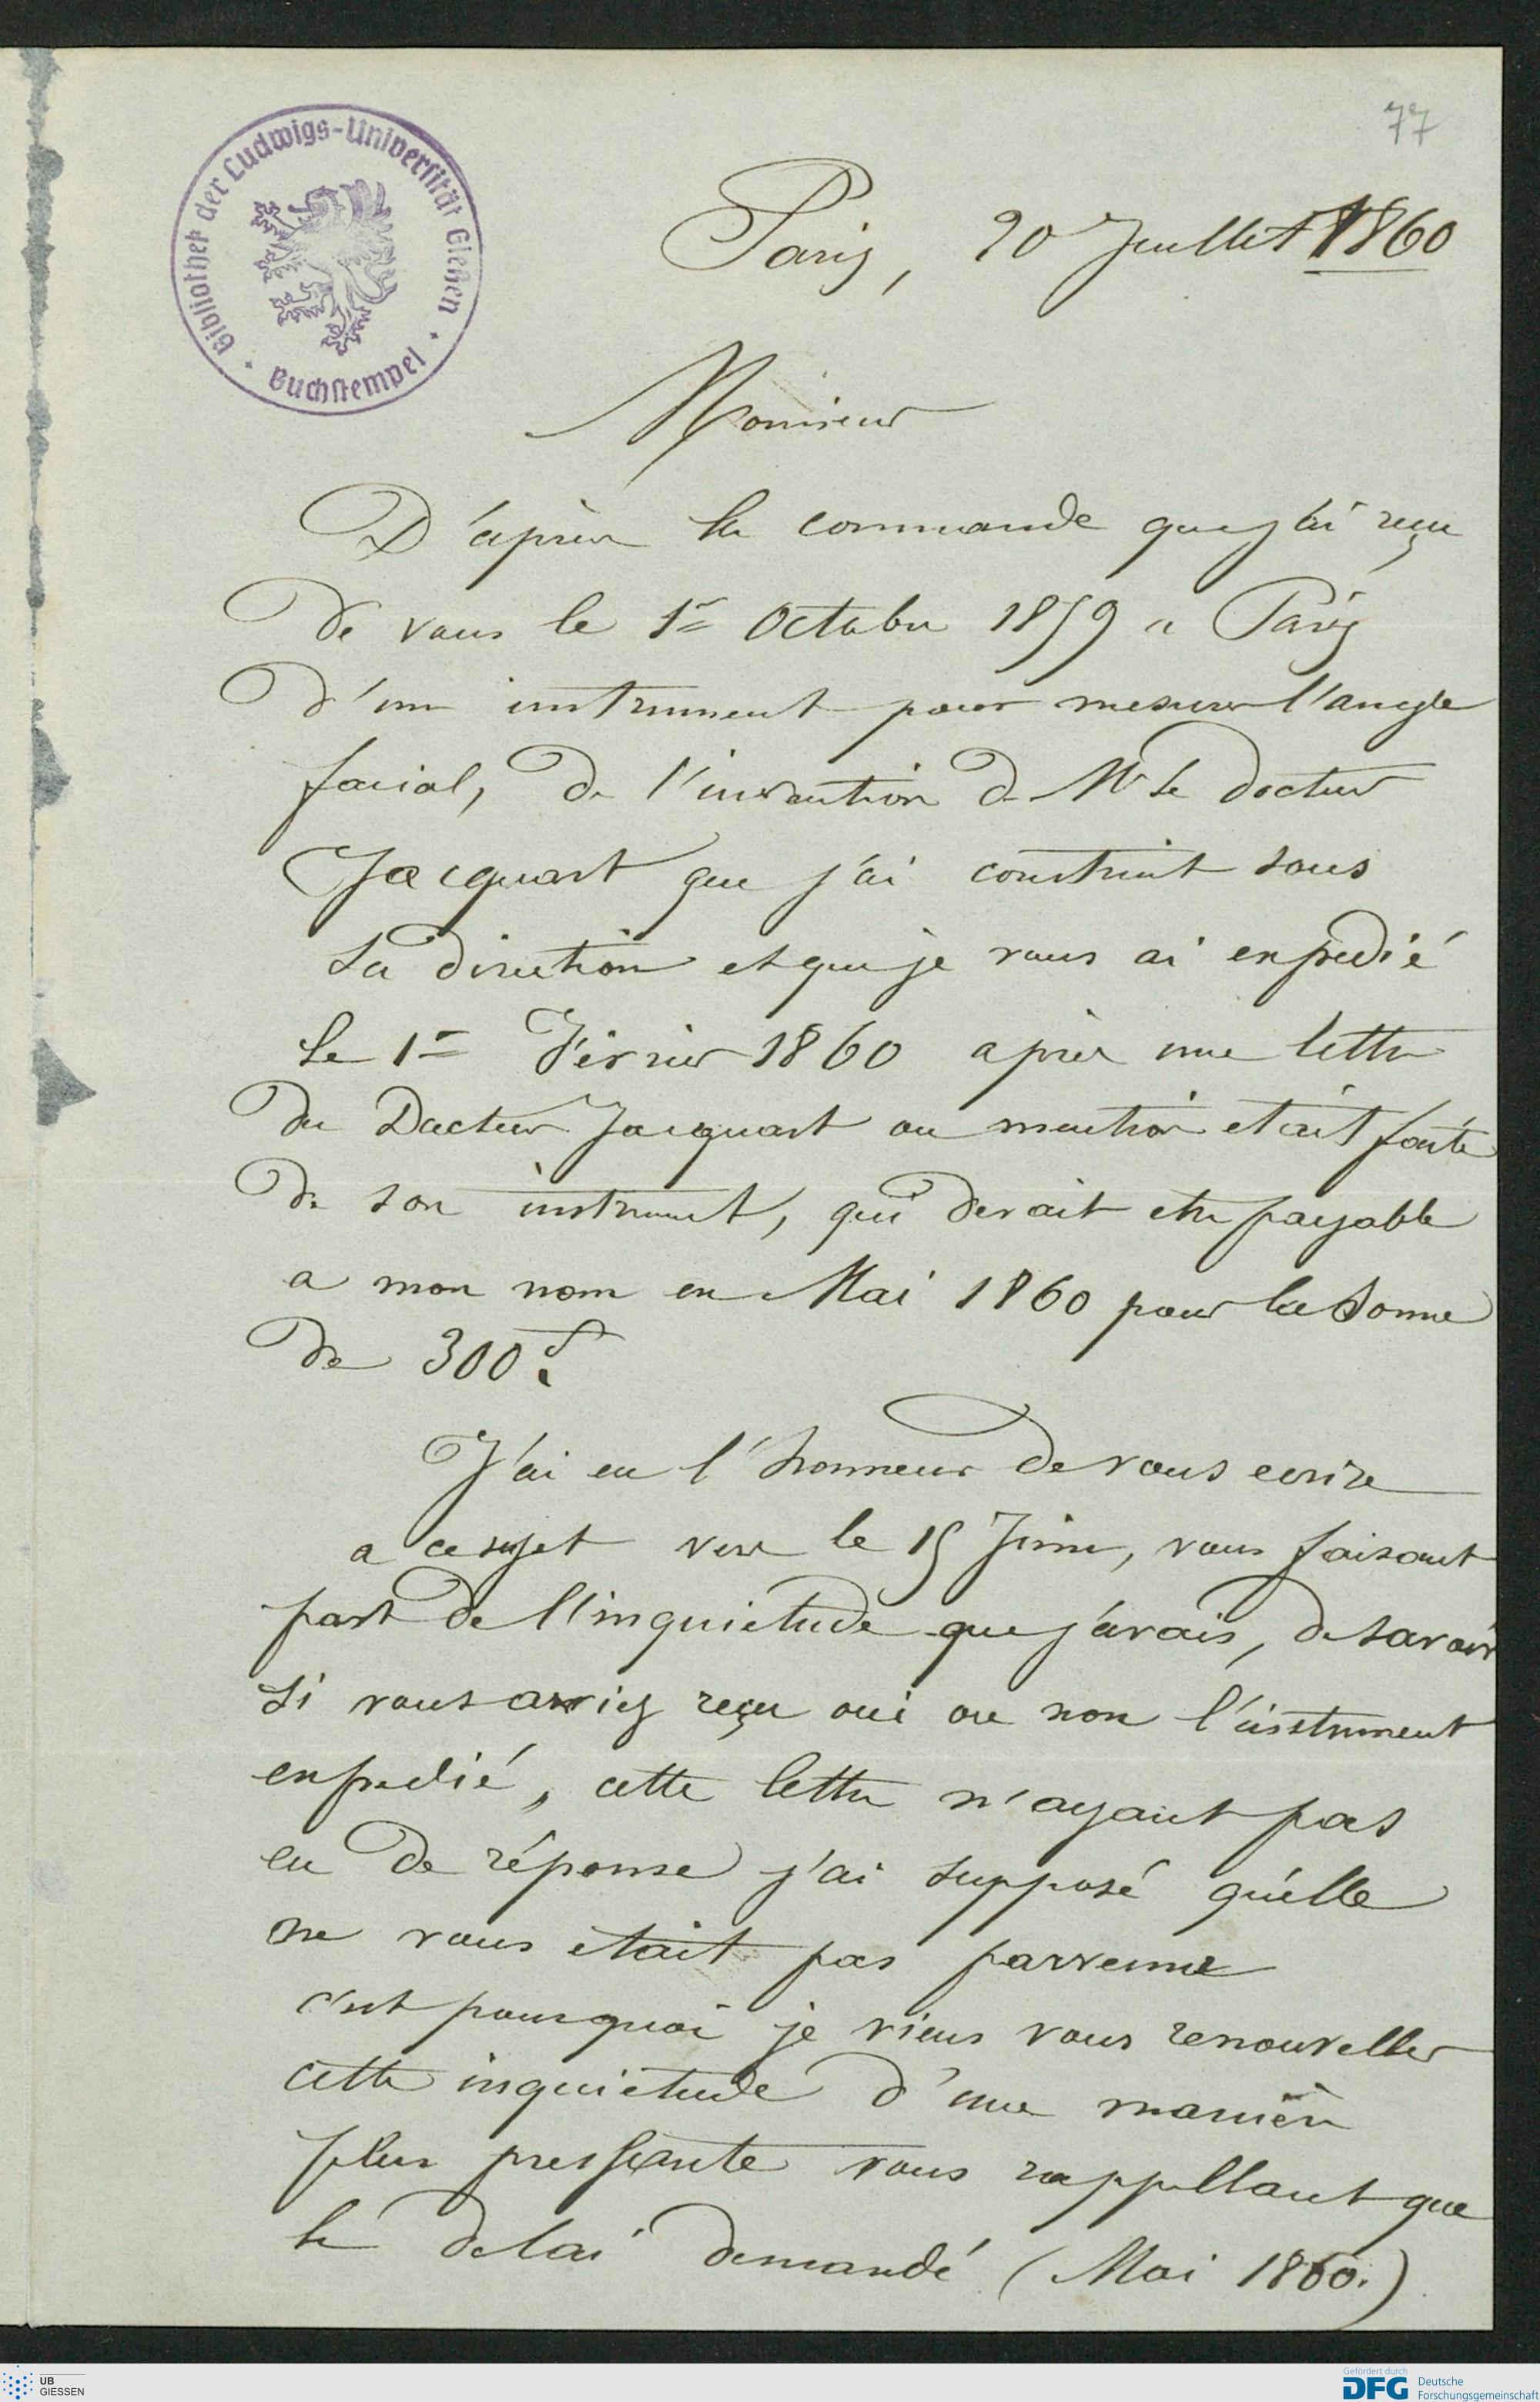 77
Bibliothek der Ludwigs-Universität Gießen
Buchstempel
Paris, 20 Juillet 1860
Monsieur
D'après la commande que j'ai reçu
de vous le 1er Octobre 1859 a Paris
d'un instrument pour mesurer l'angle
facial, de l'invention de Mr le docteur
Jacquart que j'ai construit sous
sa direction et que je vous ai expedié
le 1er Février 1860 après une lettre
du Docteur Jacquart ou mention etait faite
de son instrument, qui devait etre payable
a mon nom en Mai 1860 pour la somme
de 300f.
J'ai eu l'honneur de vous ecrire
a ce sujet vers le 15 Juin, vous faisant
part de l'inquietude que j'avais, de savoir
si vous aviez reçu oui ou non l'instrument
expedié, cette lettre n'ayant pas
eu de réponse j'ai supposé qu'elle
ne vous etait pas parvenue
c'est pourquoi je viens vous renouveller
cette inquietude d'une manière
plus pressante vous rappellant que
le delai demandé (Mai 1860.)
UB
GIESSEN
Gefördert durch
DFG Deutsche
Forschungsgemeinschaft